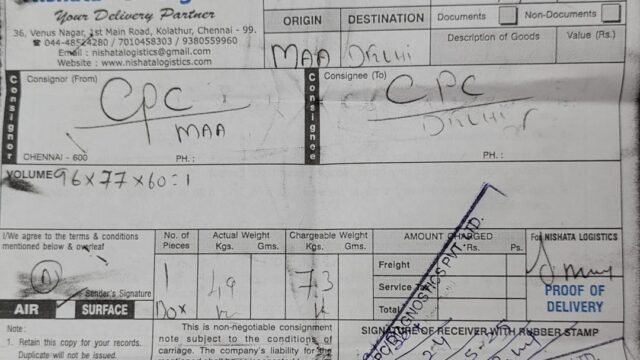 Your Delivery Partner
36, Venus Nagar, 1st Main Road, Kolathur, Chennai - 99.
☎ 044-48524280 / 7010458303 / 9380559960
Email : nishatalogistics@gmail.com
Website : www.nishatalogistics.com
ORIGIN DESTINATION
MAA DELHI
Documents Non-Documents
Description of Goods Value (Rs.)
Consignor
Consignor (From)
CPC
MAA
CHENNAI - 600 PH. :
Consignee
Consignee (To)
CPC
DELHI
PH. :
VOLUME 96x77x60=1
I/We agree to the terms & conditions
mentioned below & overleaf
Sender's Signature
AIR SURFACE
No. of Pieces
1
Box
Actual Weight
Kgs. Gms.
49
K
Chargeable Weight
Kgs. Gms.
73
K
AMOUNT CHARGED
Rs. Ps.
Freight
Service
Total
DIAGNOSTICS PVT. LTD.
For NISHATA LOGISTICS
PROOF OF
DELIVERY
Note :
1. Retain this copy for your records.
Duplicate will not be issued.
This is non-negotiable consignment
note subject to the conditions of
carriage. The company's liability for
SIGNATURE OF RECEIVER WITH RUBBER STAMP